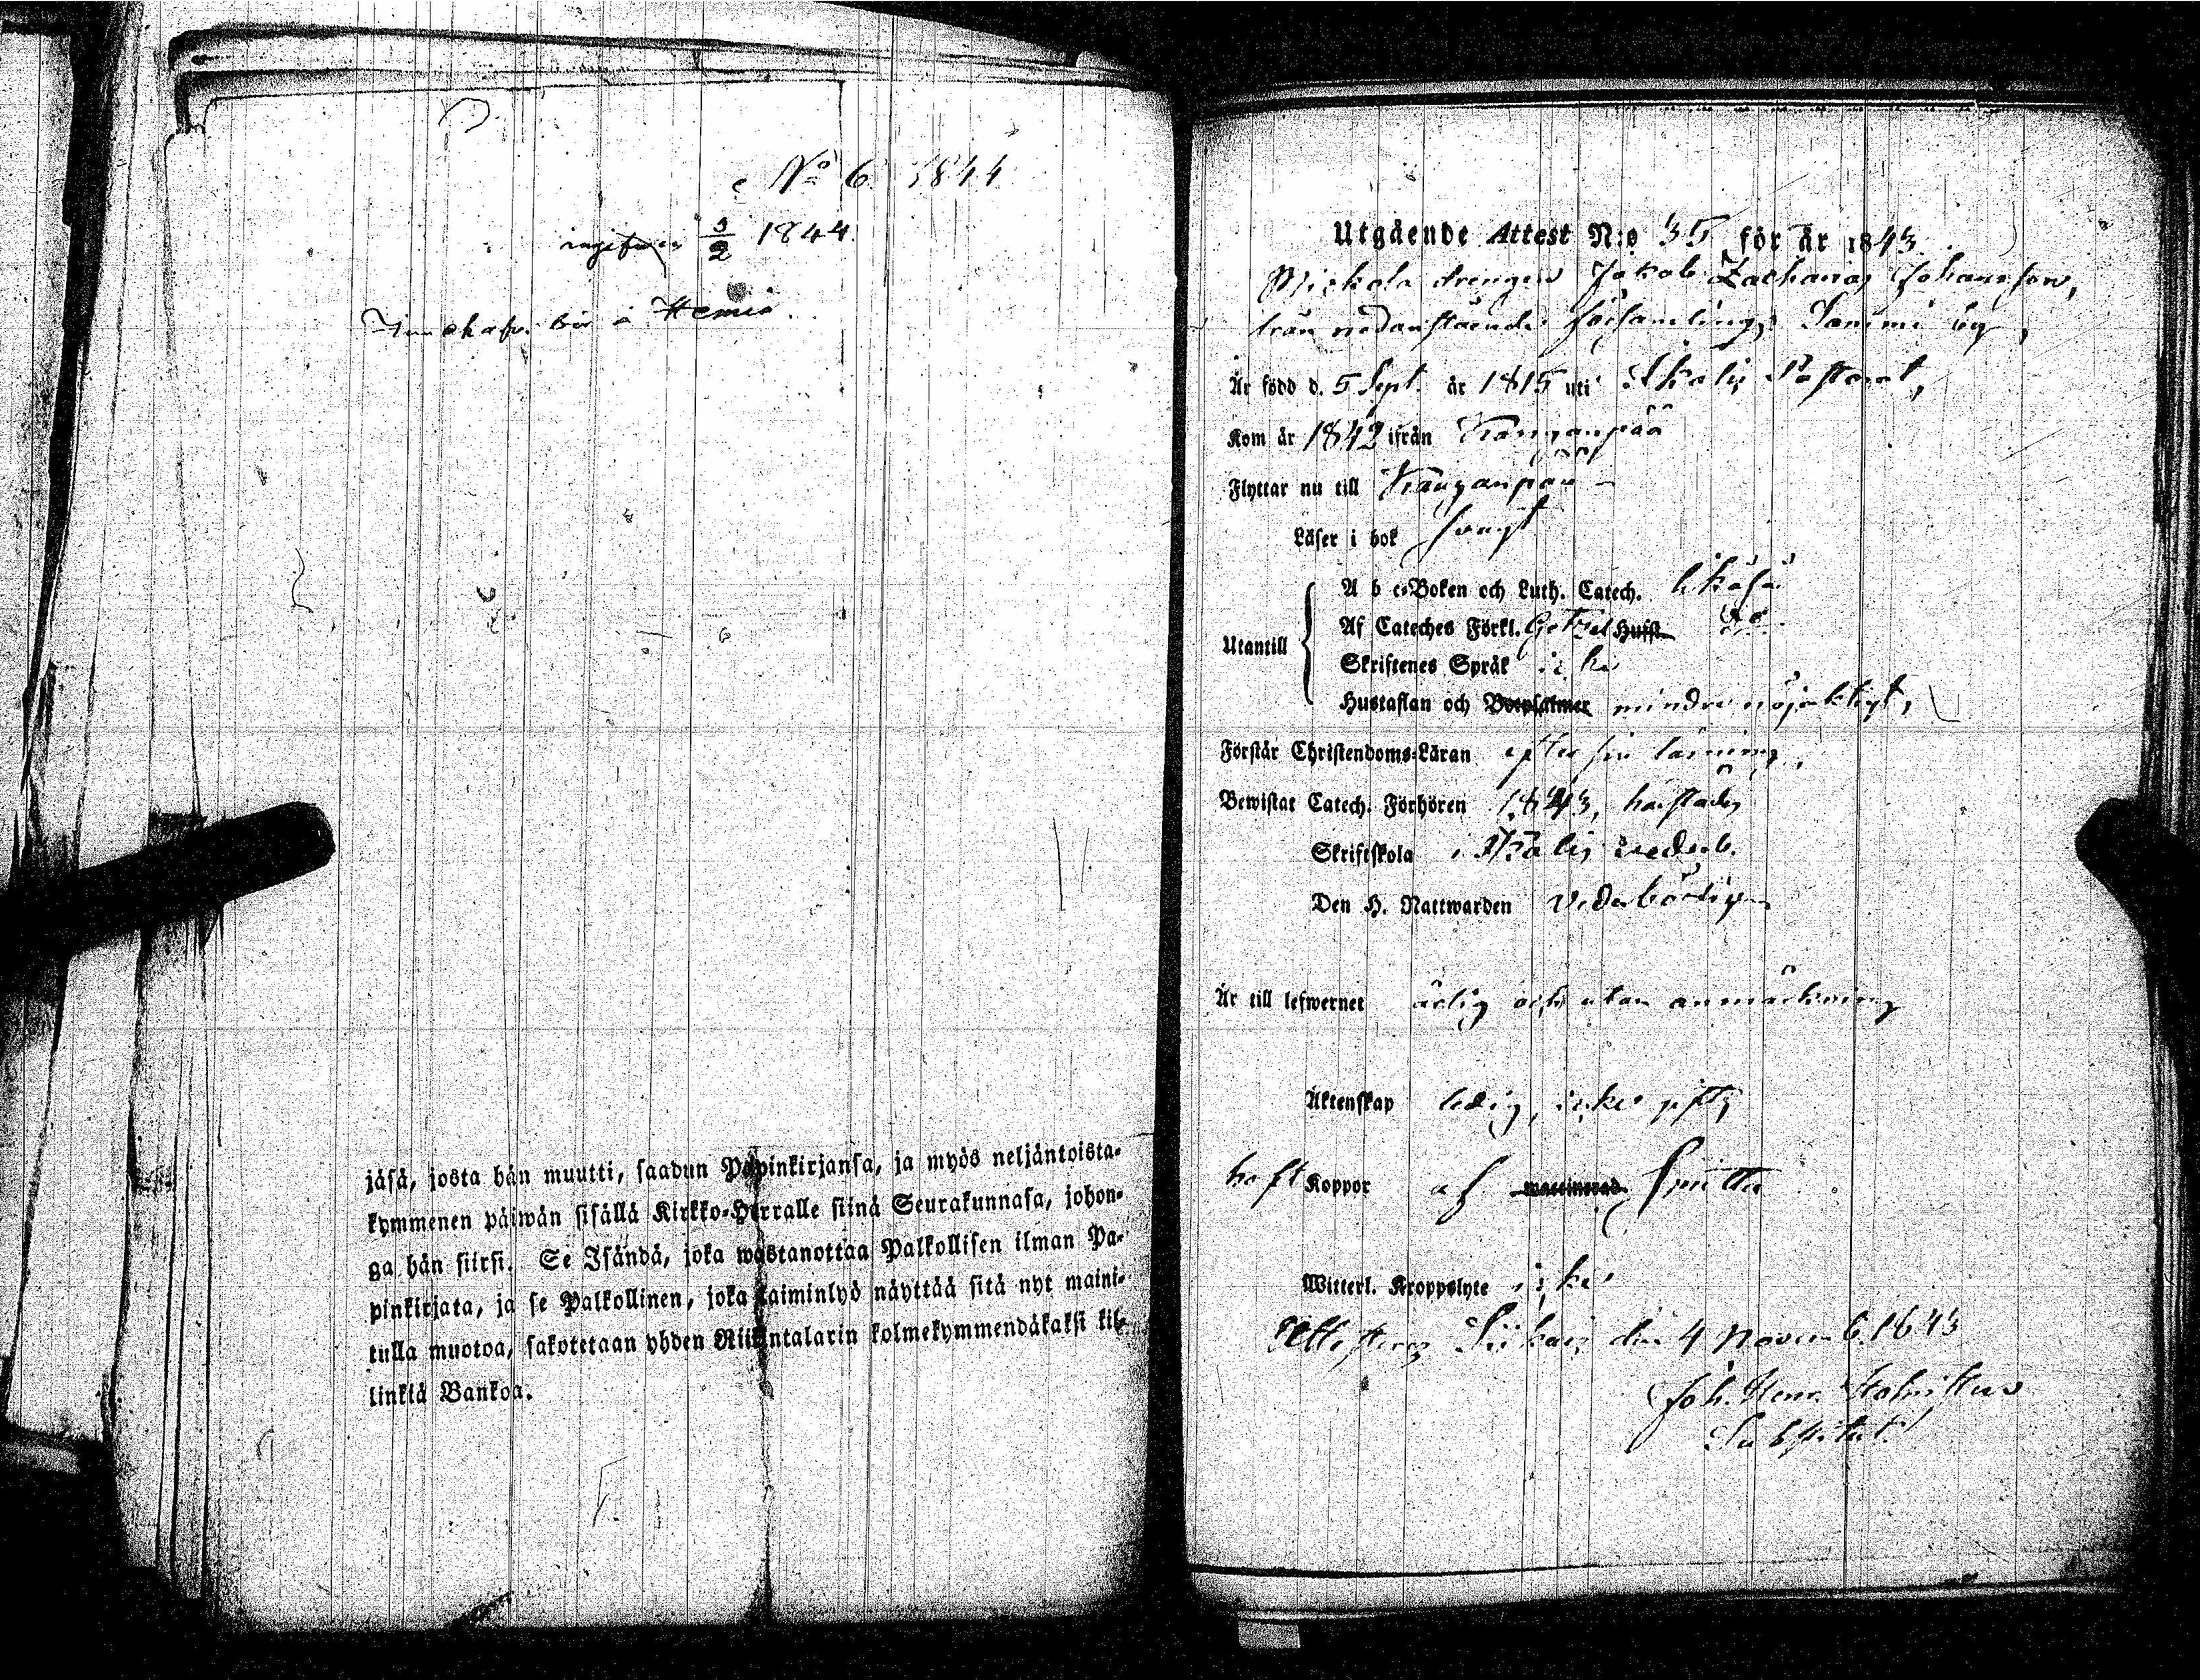 No 6. 1844
3/2 1844.
å Hemiä.
jäsä, josta hän muutti, saadun Papinkirjansa, ja myös neljäntoista-
kymmenen päiwän sisällä Kirkko-Herralle siinä Seurakunnasa, johon-
ga hän siirsi. Se Isändä, joka wastanottaa Palkollisen ilman Pa-
pinkirjata, ja se Palkollinen, joka laiminlyö näyttää sitä nyt maini-
tulla muotoa, sakotetaan yhden Riikintalarin kolmekymmendäkaksi kil-
linkiä Bankoa.
Utgående Attest N:o 35 för år 1843.
drengen Jakob Zacharias Johansson,
från nedanstående församlings Sammi by,
Är född d. 5 Sept. år 1815 uti Ikalis Pastorat,
Kom år 1842 ifrån Kanganpää
Flyttar nu till Kanganpää
Läser i bok svagt
Utantill
A b c-Boken och Luth. Catech.
Af Cateches Förkl. Getzel Hufst. do
Skriftenes Språk icke
Hustaflan och Botpsalmer mindre nöjaktigt,
Förstår Christendoms-Läran efter sin läsning,
Bewistat Catech. Förhören 1843, härstädes
Skriftskola i Ikalis vederb.
Den H. Nattwarden vederbörligen
Är till lefwernet ärlig och utan anmärkning
Äktenskap ledig, icke gift
haft Koppor af waccinerad smitta
Witterl. Kroppslyte icke
Attesteras Siikais den 4 Novemb. 1843
Joh. Henr.
Substitut.